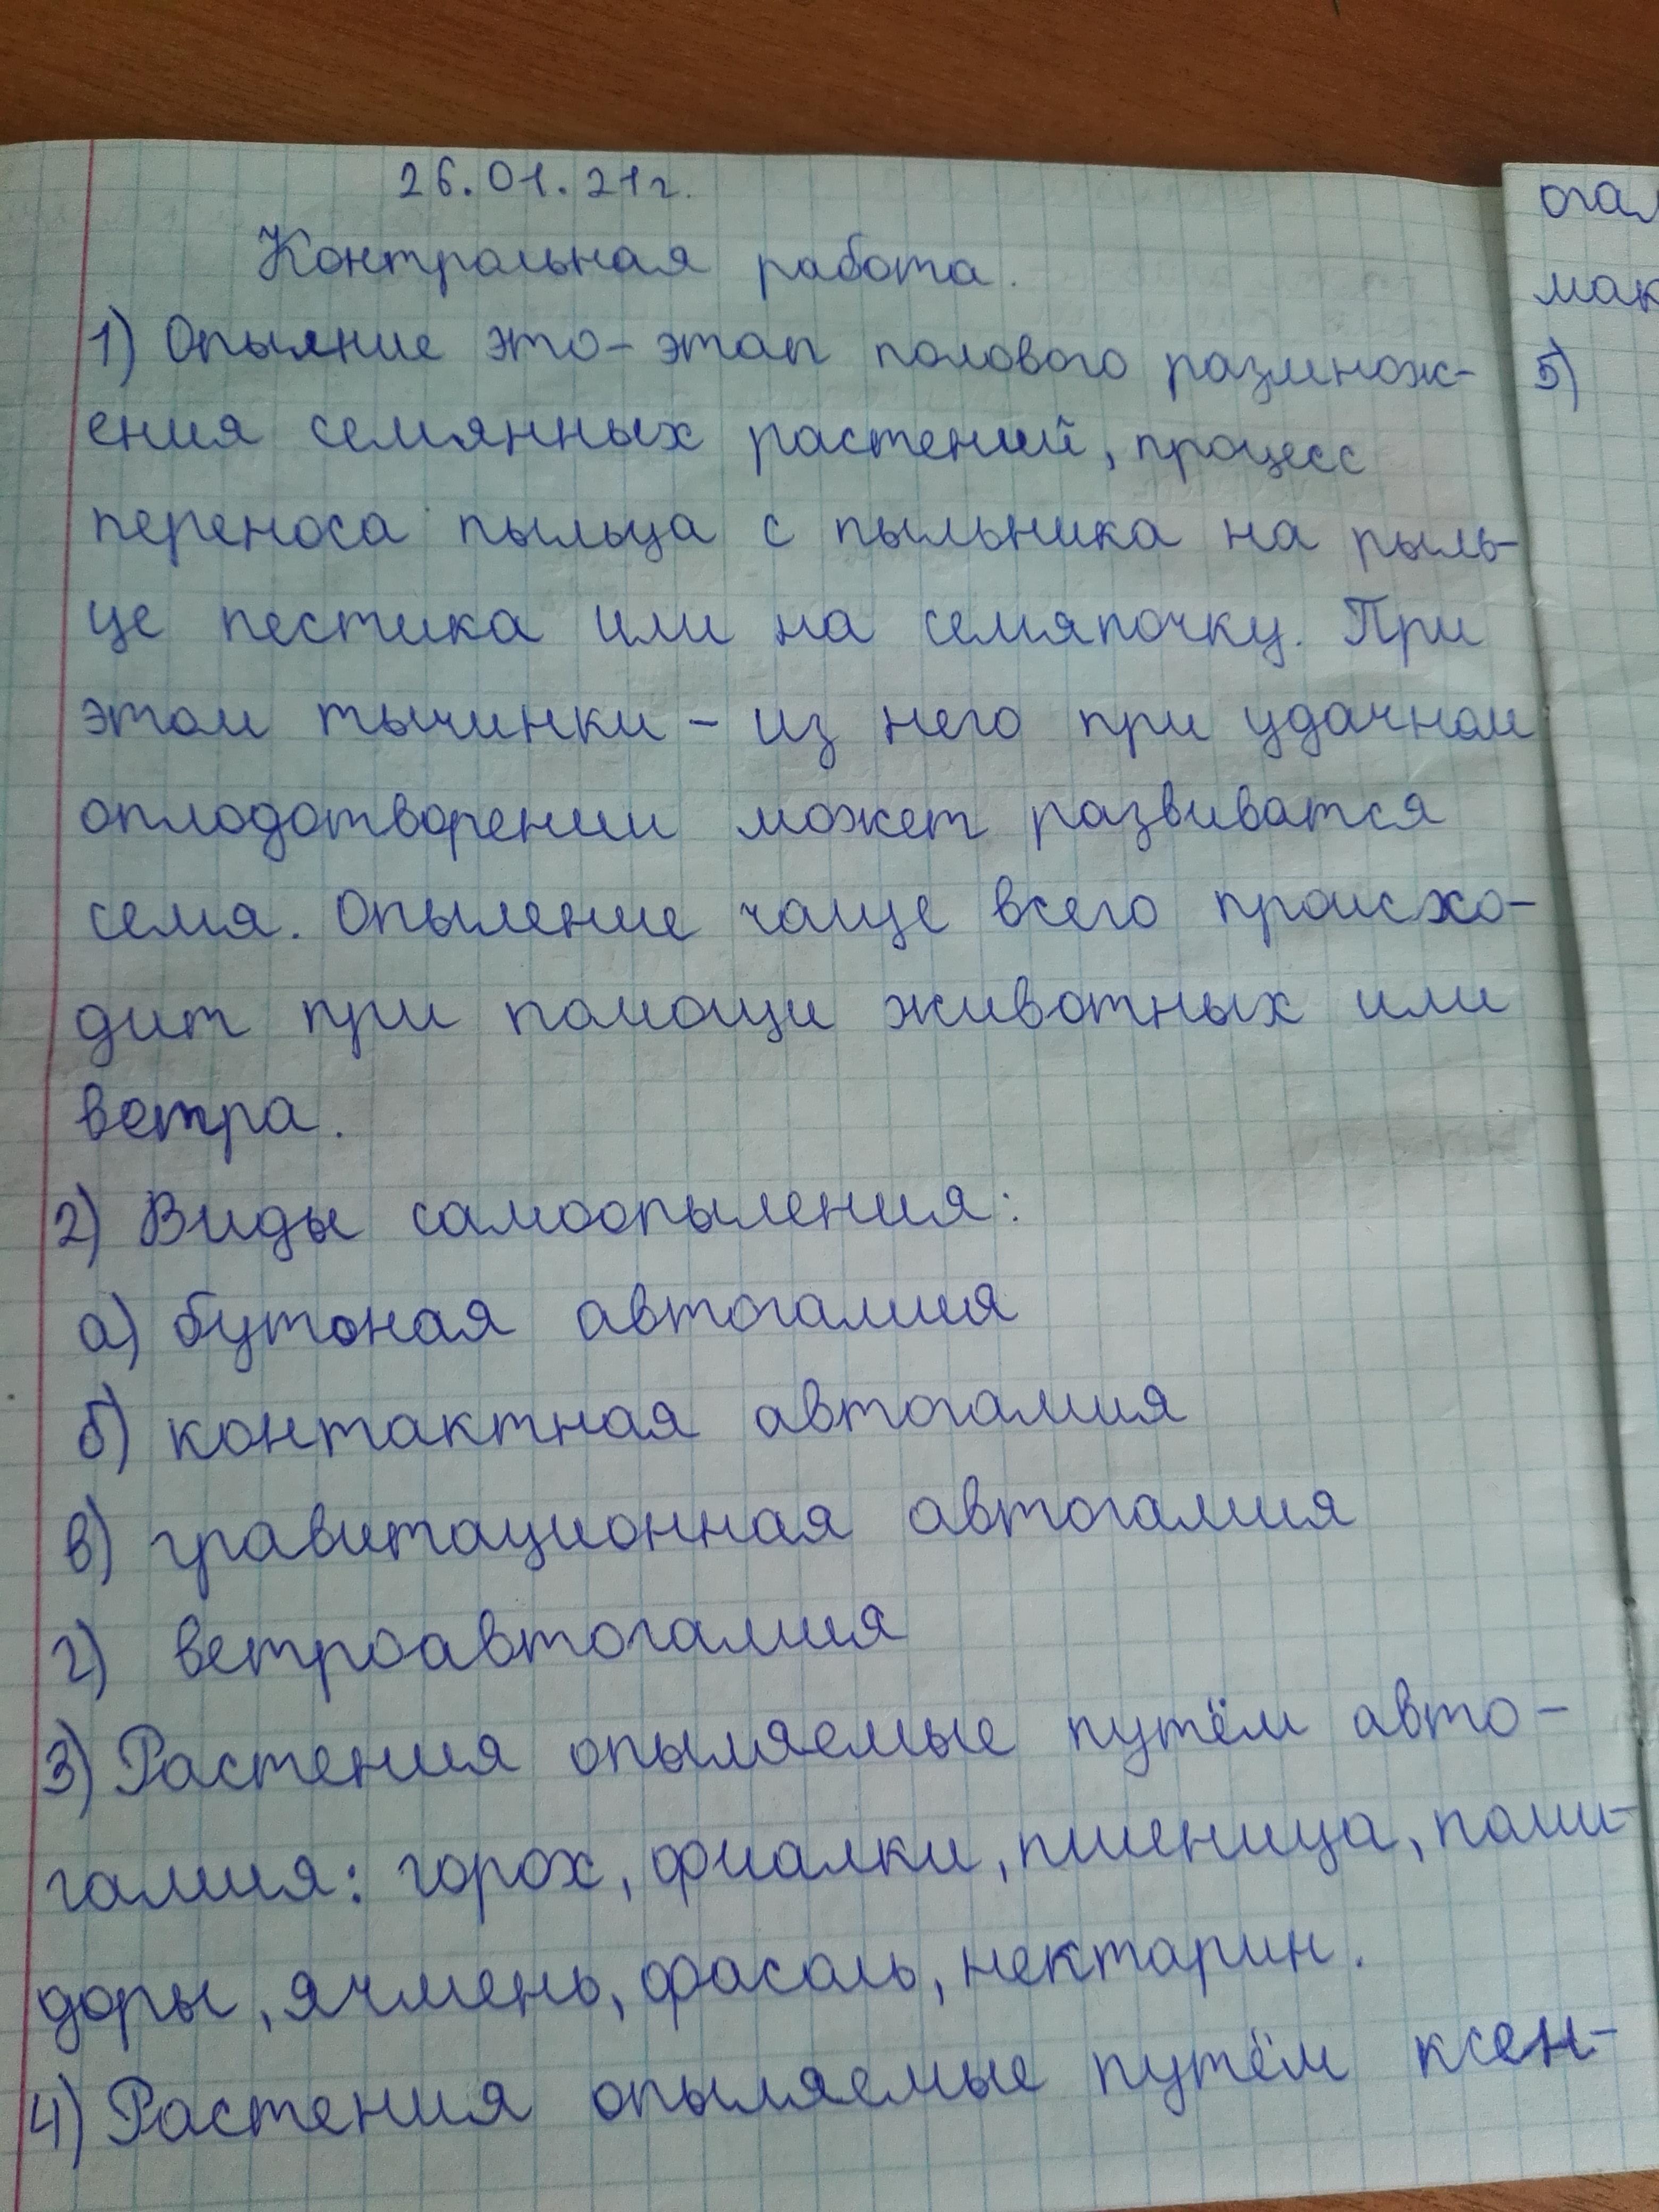 26.01.21г.
Контрольная работа.
1) Опыление это- этап полового размнож-
ения семянных растений, процесс
переноса пыльца с пыльника на рыль-
це пестика или на семяпочку. При
этом тычинки - из него при удачном
оплодотворении может развиватся
семя. Опыление чаще всего происхо-
дит при помощи животных или
ветра.
2) Виды самоопыления:
а) бутоная автогамия
б) контактная автогамия
в) гравитационная автогамия
г) ветроавтогамия
3) Растения опыляемые путём авто-
гамия: горох, фиалки, пшеница, поми-
доры, ячмень, фасоль, нектарин.
4) Растения опыляемые путём ксен-
огам
мак
5)